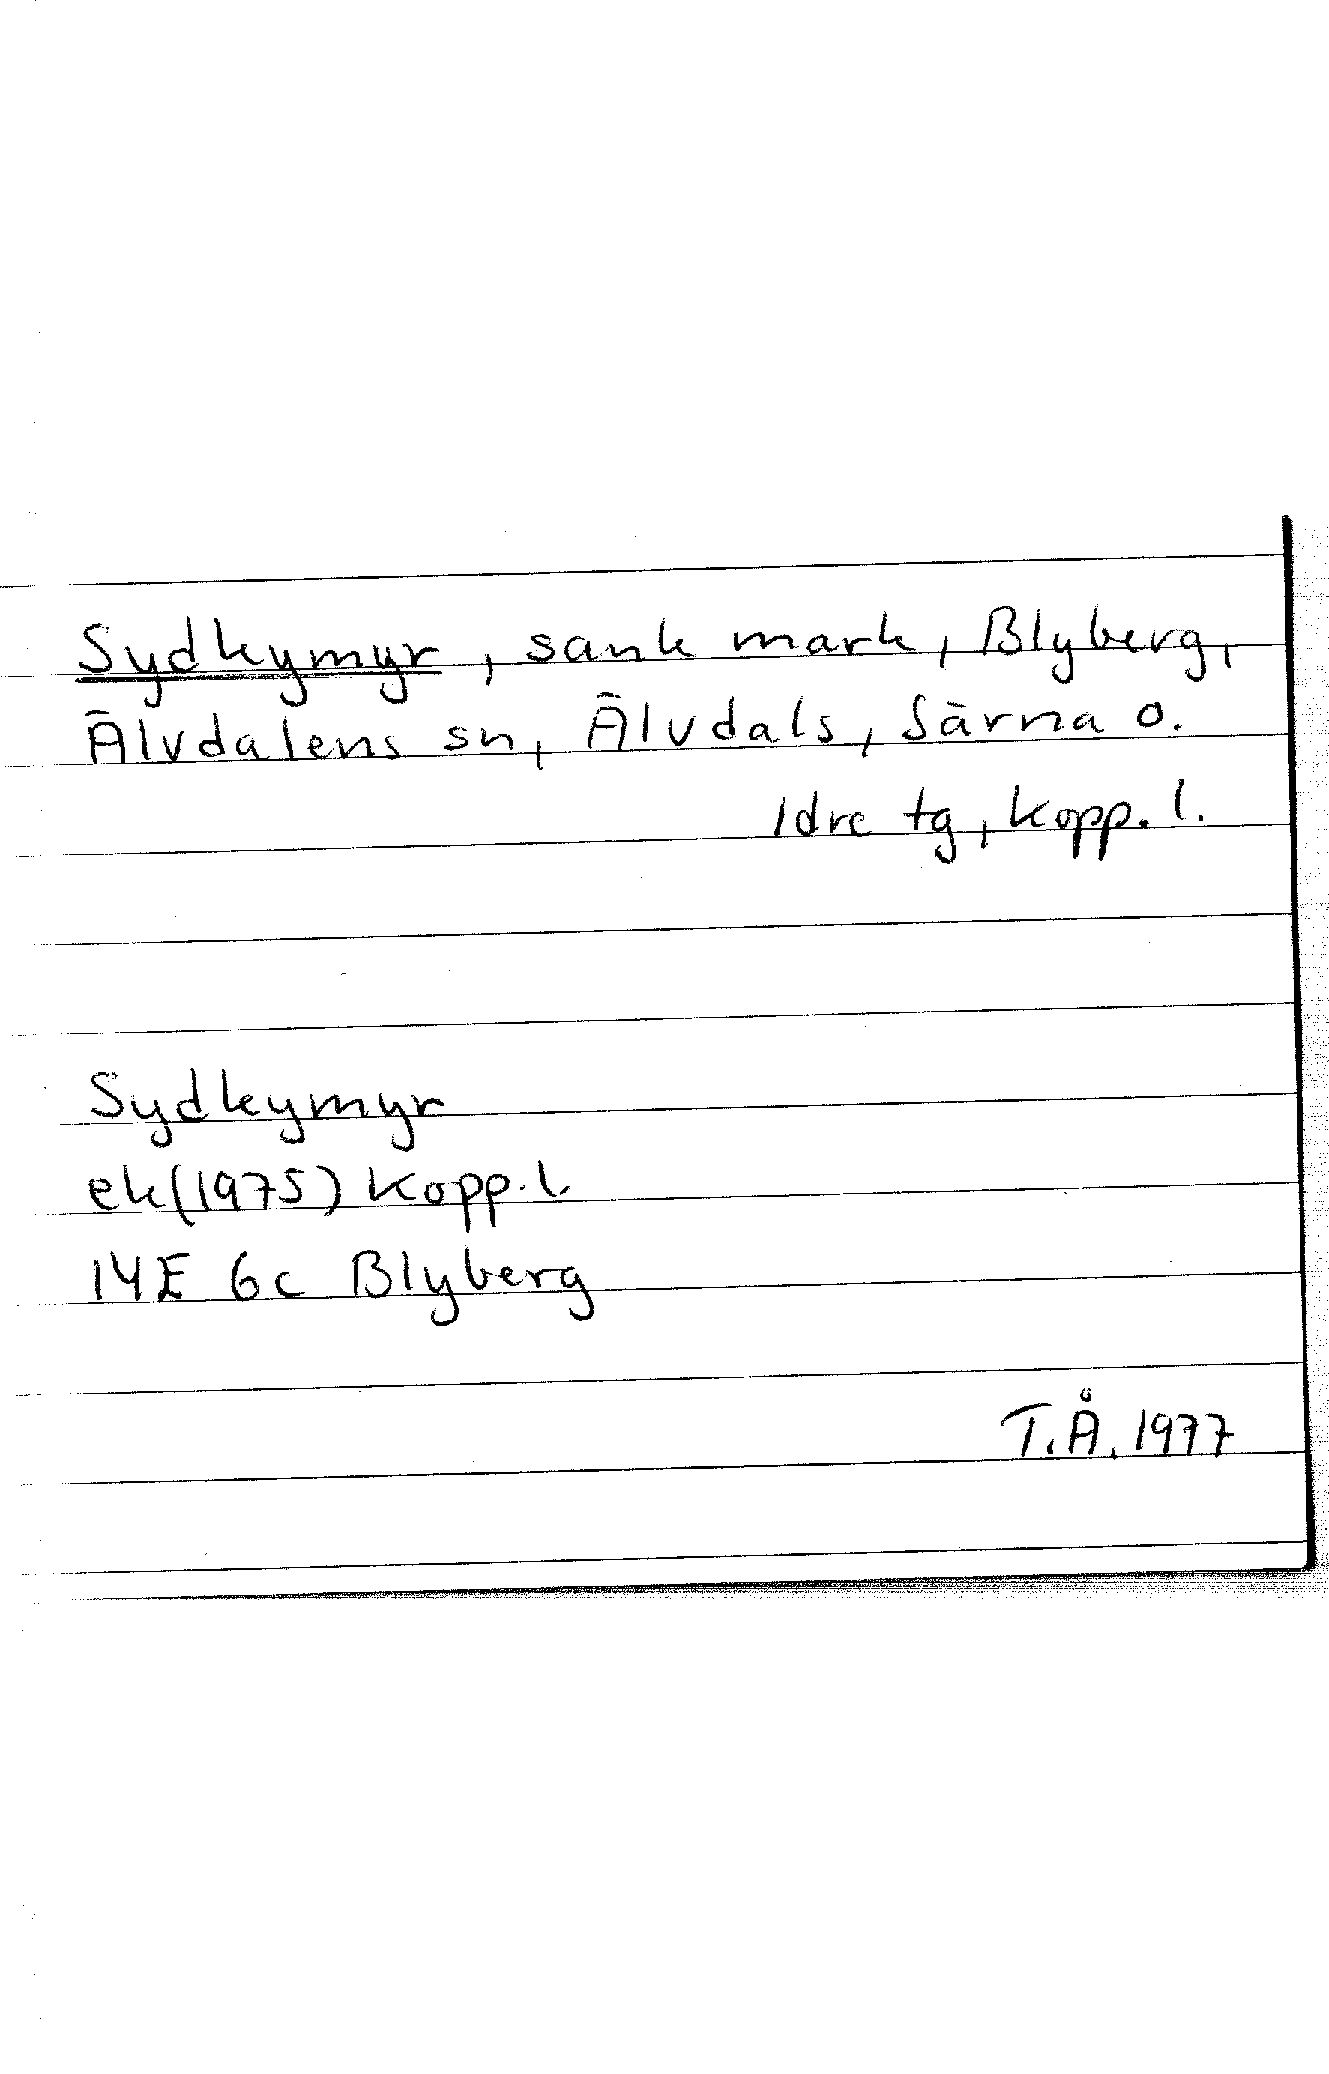 Sydkymyr, sank mark, Blyberg,
Älvdalens sn, Älvdals, Särna o.
Idre tg, Kopp. l.
Sydkymyr
ek(1975) Kopp. l.
14E 6c Blyberg
T.Å. 1977